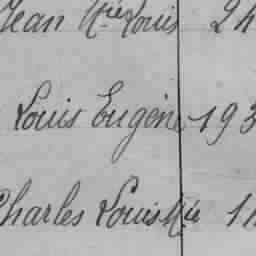 Jean Mie Louis 24
Louis Eugène 193
Charles Louis Mie 11